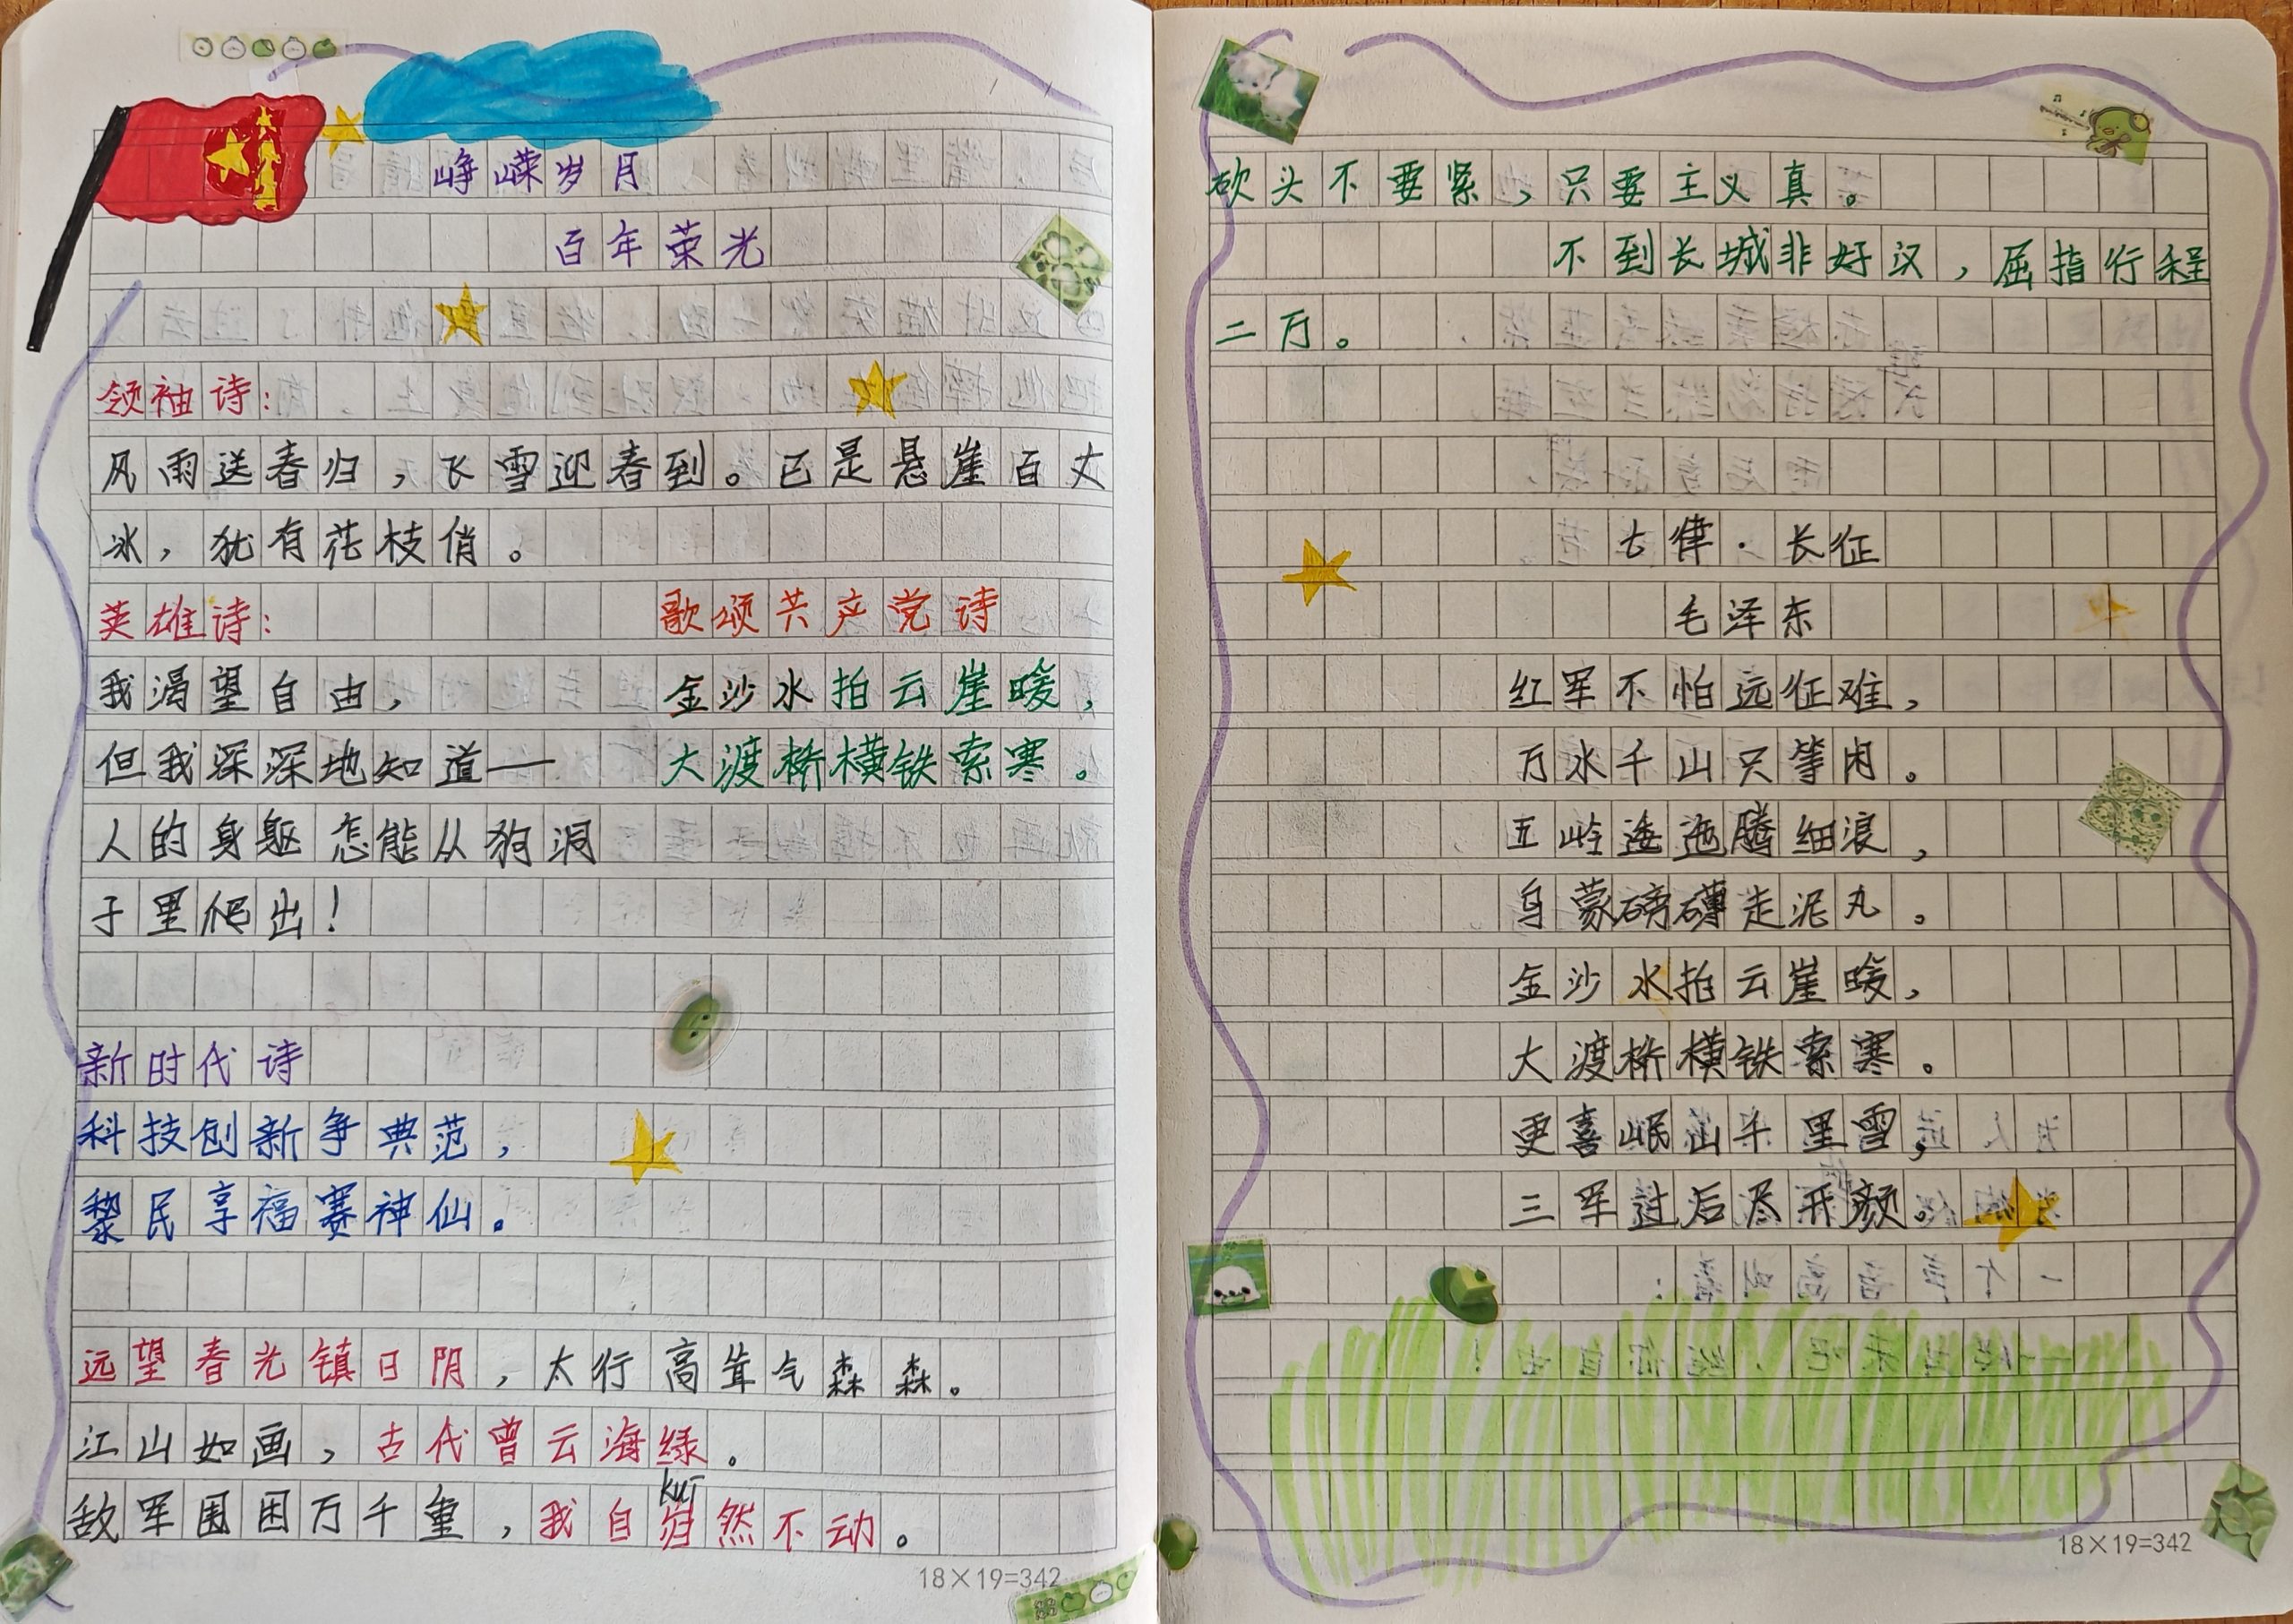 峥嵘岁月
百年荣光
领袖诗:
风雨送春归,飞雪迎春到。已是悬崖百丈
冰,犹有花枝俏。
英雄诗:
歌颂共产党诗
我渴望自由,
金沙水拍云崖暖,
但我深深地知道——
大渡桥横铁索寒。
人的身躯怎能从狗洞
子里爬出!
新时代诗
科技创新争典范,
黎民享福赛神仙。
远望春光镇日阴,太行高耸气森森。
江山如画,古代曾云海绿。
kuī
敌军围困万千重,我自岿然不动。
18×19=342
砍头不要紧,只要主义真。
不到长城非好汉,屈指行程
二万。
七律·长征
毛泽东
红军不怕远征难,
万水千山只等闲。
五岭逶迤腾细浪,
乌蒙磅礴走泥丸。
金沙水拍云崖暖,
大渡桥横铁索寒。
更喜岷山千里雪,
三军过后尽开颜。
18×19=342